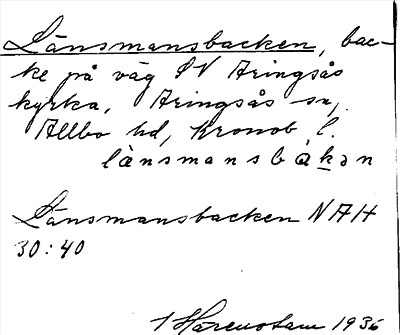 Länsmansbacken, bac-
ke på väg SV Aringsås
kyrka, Aringsås sn,
Allbo hd, Kronob l.
lànsmansbàkən
Länsmansbacken NAH
30:40
1936